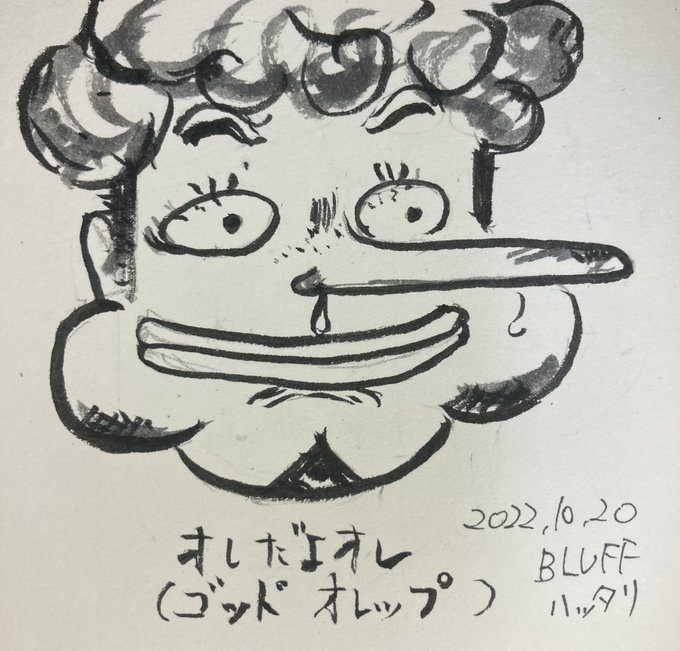 オレだよオレ
(ゴッド オレップ)
2022,10,20
BLUFF
ハッタリ